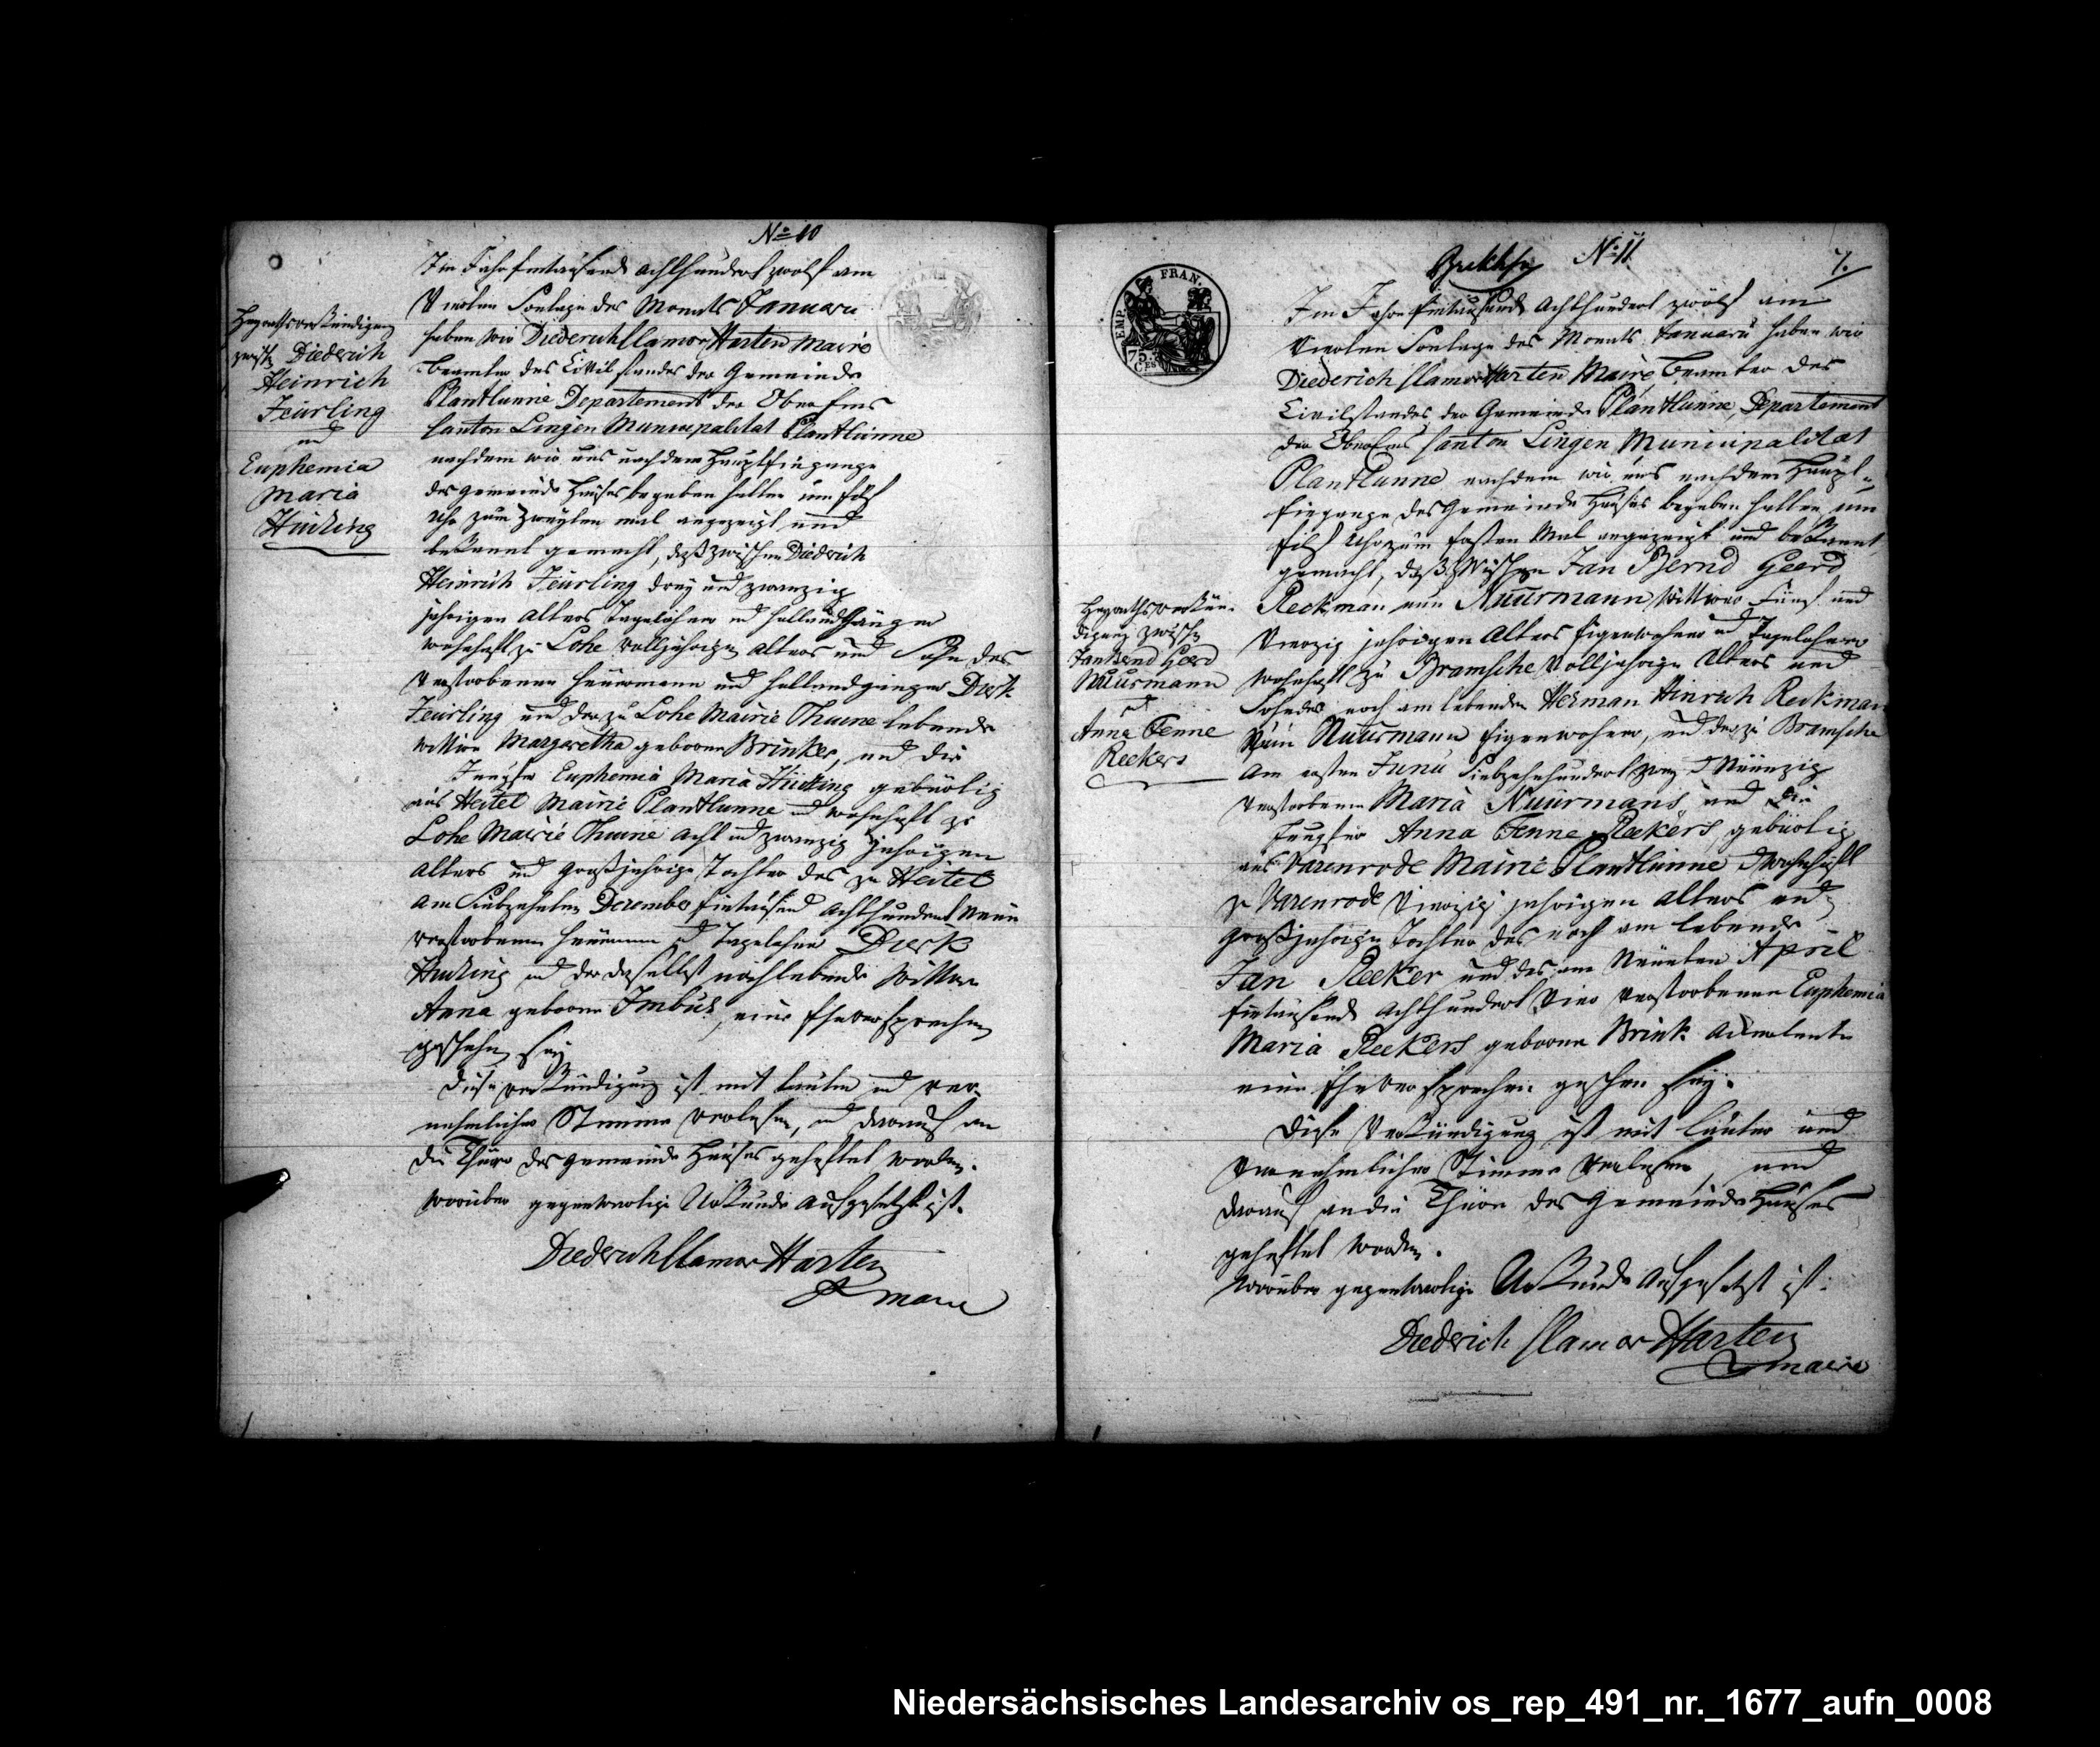 No 10
Im Jahr Eintausend achthundert zwolf am
Vierten Sontage des Monats Januarii
haben wir Diederich Clamor Harten Maire
Beamter des Civil standes der Gemeinde
Plantlunne Departement der Ober Ems
Canton Lingen Municipalitat Plantlunne
nachdem wir uns nach dem Haupteingange
des Gemeinde Hauses begeben hatten um Eilf
Uhr zum Zweyten mal angezeigt und
bekannt gemacht, daß zwischen Diedrich
Heinrich Feurling drey und zwanzig
jahrigen Alters Tagelöhner ud Hollandgänger
wohnhaft zu Lohe volljahrigen Alters und Sohn des
Verstorbenen Heuermann und Hollandgänger Dirk
Feurling und der zu Lohe Mairie Thuine lebende
Wittwe Margaretha geborne Brinker, und die
Jungfer Euphemia Maria Hüsing gebürtig
aus Heitel Mairie Plantlunne ud wohnhaft zu
Lohe Mairie Thuine acht ud zwanzig jahrigen
Alters und großjahrige Tochter des zu Heitel
am Siebzehnten Dezember Eintausend achthundert Neun
verstorbenen Heuermann ud Tagelohner Dierk
und der daselbst noch lebende Wittwe
Anna geborne Imbusk, eine Eheversprechen
geschehen sey
Diese Verkundigung ist mit lauter ud ver
nehmlicher Stimme verlesen, ud darauf an
die Thüre des Gemeinde Hauses geheftet worden.
Worüber gegenwartige Urkunde Aufgesetzt ist.
Diederich Clamor Harten
maire
Heyrathsverkündigung
zwisch Diederich
Heinrich
Feurling
ud
Euphemia
Maria
Hüsing
No 11
7.
TEMP. FRAN.
75. CES
Im Jahr Eintausend Achthundert zwölf am
Vierten Sontage des Monats Januarii haben wir
Diederich Clamor Harten Maire Beamter des
Civilstandes der Gemeinde Plantlunne, Departement
der Ober Ems Canton Lingen Municipalitat
Plantlunne nachdem wir uns nach dem Haupt-
Eingange des Gemeinde Hauses begeben hatten um
Eilf Uhr zum Ersten Mal angezeigt und bekannt
gemacht, daß Zwischen Jan Bernd Geerd
Reckman nun Nuurmann Wittwer Fünf und
Vierzig jahrigen Alters Eigenwohner ud Tagelohner
wohnhaft zu Bramsche Volljahrigen Alters und
Sohn des noch am lebenden Herman Hinrich Reckman
Nuurmann Eigenwohner, und der zu Bramsche
Am ersten Junii Siebzehnhundert zwey ud Neunzig
Verstorbenen Maria Nuurmans und die
Jungfer Anna Fenne Reekers gebürtig
aus Varenrode Mairie Plantlünne ud wohnhaft
zu Varenrode Vierzig jahrigen Alters und
großjahrige Tochter des noch am lebende
Jan Reeker und des am Neunten April
Eintausend Achthundert Vier Verstorbenen Euphemia
Maria Reekers geborne Brink
eine Eheversprechen geschehn sey.
Diese Verkündigung ist mit lauter und
Vernehmlicher Stimme Verlesen, und
darauf an die Thüre des Gemeinde Hauses
geheftet worden.
Worüber gegenwartige Urkunde Aufgesetzt ist.
Diedrich Clamor Harten
maire
Heyrathsverkün-
digung zwisch
Jan Bernd Geerd
Nuurmann
ud
Anna Fenne
Reekers
Niedersächsisches Landesarchiv os_rep_491_nr._1677_aufn_0008